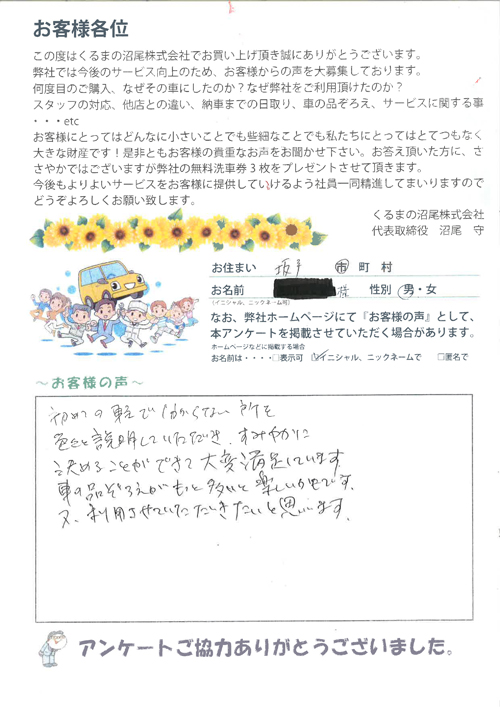 お客様各位
この度はくるまの沼尾株式会社でお買い上げ頂き誠にありがとうございます。
弊社では今後のサービス向上のため、お客様からの声を大募集しております。
何度目のご購入、なぜその車にしたのか？なぜ弊社をご利用頂けたのか？
スタッフの対応、他店との違い、納車までの日取り、車の品ぞろえ、サービスに関する事
・・・etc
お客様にとってはどんなに小さいことでも些細なことでも私たちにとってはとてつもなく
大きな財産です！是非ともお客様の貴重なお声をお聞かせ下さい。お答え頂いた方に、さ
さやかではございますが弊社の無料洗車券３枚をプレゼントさせて頂きます。
今後もよりよいサービスをお客様に提供していけるよう社員一同精進してまいりますので
どうぞよろしくお願い致します。
くるまの沼尾株式会社
代表取締役 沼尾 守
お住まい 坂戸 市 町 村
お名前 様 性別 男・女
（イニシャル、ニックネーム可）
なお、弊社ホームページにて『お客様の声』として、
本アンケートを掲載させていただく場合があります。
ホームページなどに掲載する場合
お名前は・・・・□表示可 ☑イニシャル、ニックネームで □匿名で
～お客様の声～
初めての車で分からない所を
色々と説明していただき、すみやかに
決めることができて大変満足しています。
車の品ぞろえがもっと多いと楽しいかもです。
又、利用させていただきたいと思います。
アンケートご協力ありがとうございました。